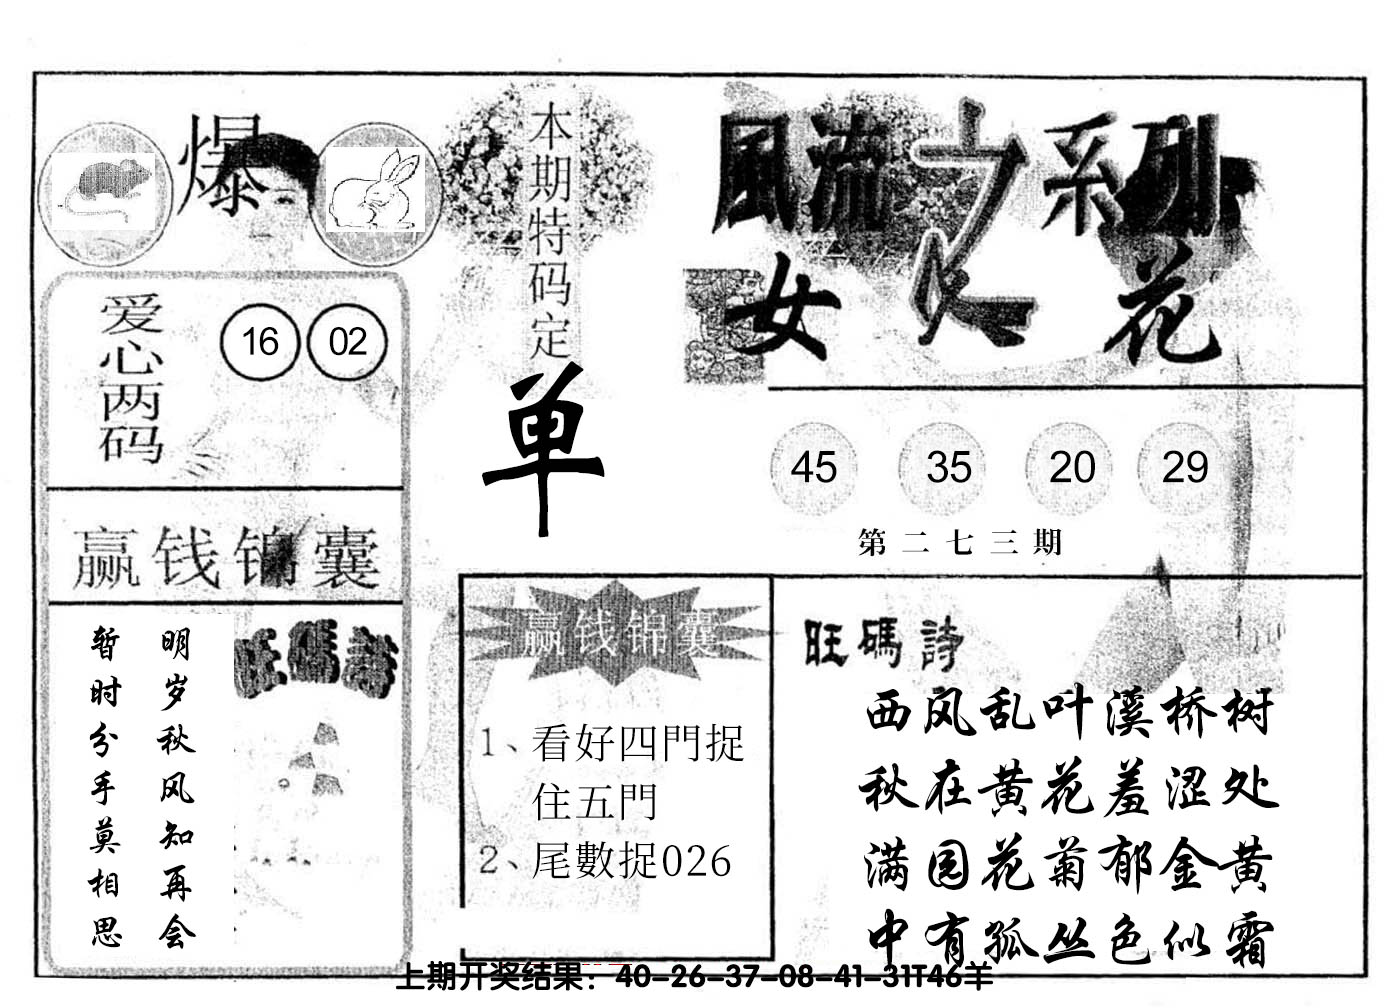 爆
本期特码定
单
風流之系列
女人花
爱心两码
16 02
赢钱锦囊
明岁秋风知再会
暂时分手莫相思
旺碼詩
45 35 20 29
第二七三期
赢钱锦囊
1、看好四門捉
住五門
2、尾數捉026
旺碼詩
西风乱叶溪桥树
秋在黄花羞涩处
满园花菊郁金黄
中有孤丛色似霜
上期开奖结果：40-26-37-08-41-31T46羊